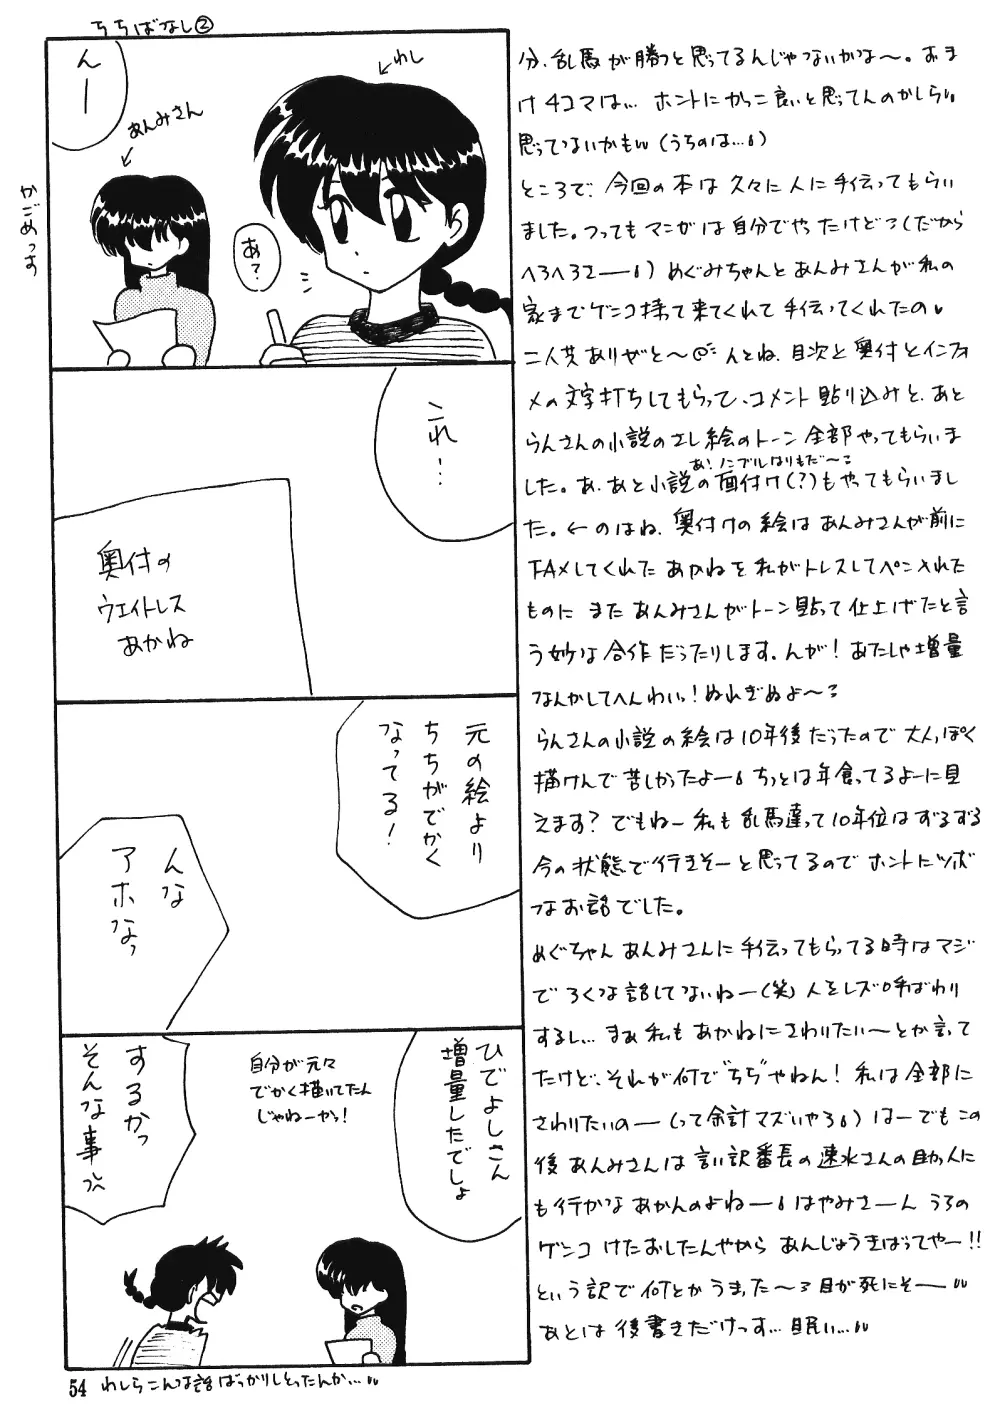 ちちばなし②
んー
←わし
あんみさん
かごめっす
あ?
これ…
奥付の
ウエイトレス
あかね
元の絵より
ちちがでかく
なってる!
んな
アホなっ
ひでよしさん
増量したでしょ
自分が元々
でかく描いてたん
じゃねーかっ!
するかっ
そんな事っ
54 わしらこんな話ばっかりしとったんか…
分、乱馬が勝つと思ってるんじゃないかな〜。おま
け4コマは… ホントにかっこ良いと思ってんのかしら
思ってないかも(うちのは…)
ところで、今回の本は久々に人に手伝ってもらい
ました。つってもマンガは自分でやったけど(だから
へろへろさー)めぐみちゃんとあんみさんが私の
家までゲンコ持って来てくれて手伝ってくれたの
二人共ありがと〜 んとね、目次と奥付とインフォ
メの文字打ちしてもらって、コメント貼り込みと、あと
らんさんの小説のさし絵のトーン全部やってもらいま
あ!ノンブルはりもだ〜
した。あ、あと小説の面付け(?)もやってもらいまし
た。←のはね、奥付けの絵はあんみさんが前に
FAXしてくれたあかねを私がトレスしてペン入れた
ものに またあんみさんがトーン貼って仕上げたと言
う妙な合作だったりします。んが! あたしゃ増量
なんかしてへんわいっ! ぬれぎぬよ〜
らんさんの小説の絵は10年後だったので大人っぽく
描けんで苦しかったよー ちっとは年食ってるよーに見
えます? でもねー私も乱馬達って10年位はずるずる
今の状態で行きそーと思ってるのでホントにツボ
なお話でした。
めぐちゃんあんみさんに手伝ってもらってる時はマジ
でろくな話してないねー(笑)人をレズ呼ばわり
するし… まぁ私もあかねにさわりたい〜とか言って
たけど、それが何で“ちち”やねん! 私は全部に
さわりたいのー(って余計マズいやろ)はーでもこの
後あんみさんは言い訳番長の速水さんの助っ人に
も行かなあかんのよねー はやみさーん うちの
ゲンコ けたおしたんやから あんじょうきばってやー!!
という訳で何とかうまった〜 目が死にそー
あとは後書きだけっす… 眠い…